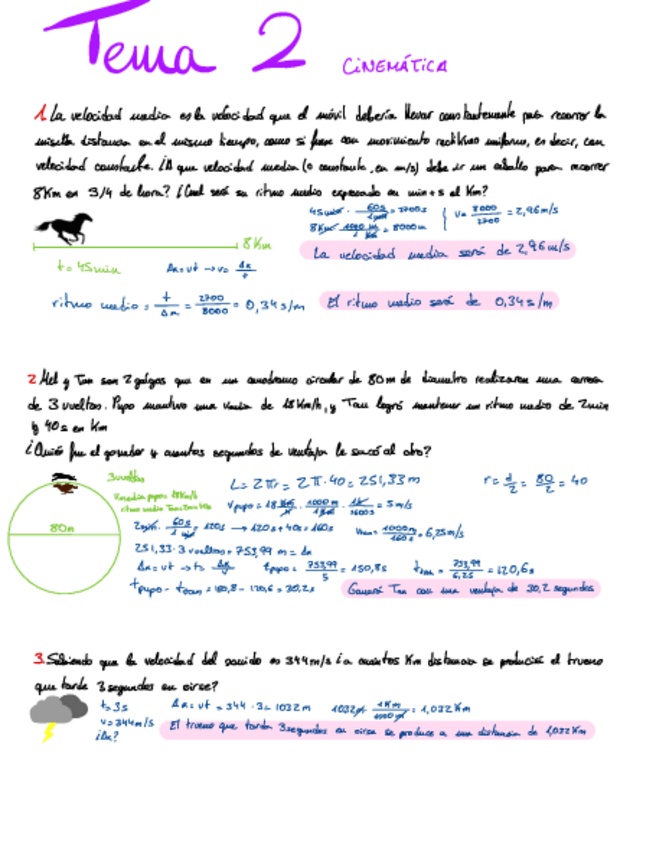 Tema 2 CINEMÁTICA
1. La velocidad media es la velocidad que el móvil debería llevar constantemente para recorrer la
misma distancia en el mismo tiempo, como si fuese con movimiento rectilíneo uniforme, es decir, con
velocidad constante. ¿A que velocidad media (o constante, en m/s) debe ir un caballo para recorrer
8Km en 3/4 de hora? ¿Cual será su ritmo medio expresado en min+s al Km?
45min · 60s/1min = 2700s
8Km · 1000 m/1 Km = 8000m
v = 8000/2700 = 2,96m/s
8Km
La velocidad media será de 2,96m/s
t = 45min
Δx = vt → v = Δx/t
ritmo medio = t/Δx = 2700/8000 = 0,34s/m
El ritmo medio será de 0,34s/m
2 Mel y Tan son 2 galgos que en un canodromo circular de 80m de diametro realizaron una carrera
de 3 vueltas. Pupo mantuvo una Vmedia de 18Km/h, y Tau logró mantener un ritmo medio de 2min
y 40s en Km
¿Quién fue el ganador y cuantos segundos de ventaja le sacó al otro?
3vueltas
L = 2πr = 2π·40 = 251,33m
r = d/2 = 80/2 = 40
Vmedia pupo = 18Km/h
Vpupo = 18 Km/h · 1000m/1Km · 1h/3600s = 5m/s
80m
2min · 60s/1min = 120s → 120s+40s = 160s
= 1000m/160s = 6,25m/s
251,33·3vueltas = 753,99m = Δx
Δx = vt → t = Δx/v
tpupo = 753,99/5 = 150,8s
= 753,99/6,25 = 120,6s
tpupo - ttan = 150,8 - 120,6 = 30,2s
Ganará Tan con una ventaja de 30,2 segundos
3. Sabiendo que la velocidad del sonido es 344m/s ¿a cuántos Km distancia se producirá el trueno
que tarde 3 segundos en oirse?
t = 3s
Δx = vt = 344·3 = 1032m
1032m · 1Km/1000m = 1,032Km
v = 344m/s
¿Δx?
El trueno que tarda 3segundos en oirse se produce a una distancia de 1,032Km